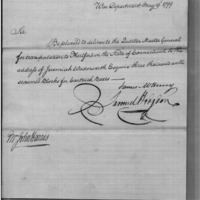 War Department May 9th 1799
Sir
Be pleased to deliver to the Quarter Master General
for transportation to Hartford in the State of Connecticut to the
address of Jeremiah Wadsworth Esquire three thousand and
seasoned Blocks for Cartouch Boxes
James McHenry
Samuel Hodgdon
Mr John Harris